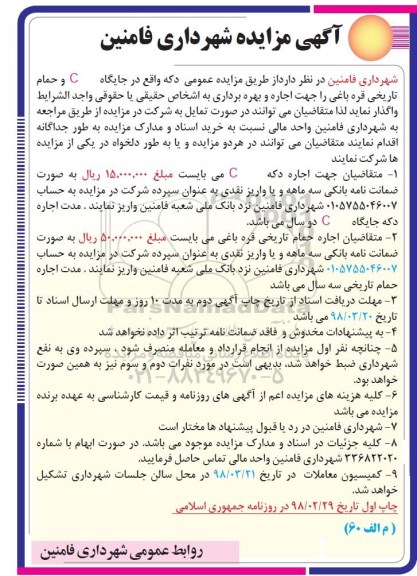 آگهی مزایده شهرداری فامنین
شهرداری فامنین در نظر دارداز طریق مزایده عمومی دکه واقع در جایگاه C و حمام
تاریخی قره باغی را جهت اجاره و بهره برداری به اشخاص حقیقی یا حقوقی واجد الشرایط
واگذار نماید لذا متقاضیان می توانند در صورت تمایل به شرکت در مزایده از طریق مراجعه
به شهرداری فامنین واحد مالی نسبت به خرید اسناد و مدارک مزایده به طور جداگانه
اقدام نمایند متقاضیان می توانند در هردو مزایده و یا به طور دلخواه در یکی از مزایده
ها شرکت نمایند
۱- متقاضیان جهت اجاره دکه C می بایست مبلغ ۱۵,۰۰۰,۰۰۰ ریال به صورت
ضمانت نامه بانکی سه ماهه و یا واریز نقدی به عنوان سپرده شرکت در مزایده به حساب
۰۱۰۵۷۵۵۰۴۶۰۰۷ شهرداری فامنین نزد بانک ملی شعبه فامنین واریز نمایند . مدت اجاره
دکه جایگاه C دو سال می باشد.
۲- متقاضیان اجاره حمام تاریخی قره باغی می بایست مبلغ ۵۰,۰۰۰,۰۰۰ ریال به صورت
ضمانت نامه بانکی سه ماهه و یا واریز نقدی به عنوان سپرده شرکت در مزایده به حساب
۰۱۰۵۷۵۵۰۴۶۰۰۷ شهرداری فامنین نزد بانک ملی شعبه فامنین واریز نمایند . مدت اجاره
حمام تاریخی سه سال می باشد
۳- مهلت دریافت اسناد از تاریخ چاپ آگهی دوم به مدت ۱۰ روز و مهلت ارسال اسناد تا
تاریخ ۹۸/۰۳/۲۰ می باشد
۴- به پیشنهادات مخدوش و فاقد ضمانت نامه ترتیب اثر داده نخواهد شد
۵- چنانچه نفر اول مزایده از انجام قرارداد و معامله منصرف شود ، سپرده وی به نفع
شهرداری ضبط خواهد شد. بدیهی است در مورد نفرات دوم و سوم نیز به همین صورت
خواهد بود.
۶- کلیه هزینه های مزایده اعم از آگهی های روزنامه و قیمت کارشناسی به عهده برنده
مزایده می باشد
۷- شهرداری فامنین در رد یا قبول پیشنهاد ها مختار است
۸- کلیه جزئیات در اسناد و مدارک مزایده موجود می باشد. در صورت ابهام با شماره
۳۳۶۸۲۲۰۲۰ شهرداری فامنین واحد مالی تماس حاصل فرمایید.
۹- کمیسیون معاملات در تاریخ ۹۸/۰۳/۲۱ در محل سالن جلسات شهرداری تشکیل
خواهد شد.
چاپ اول تاریخ ۹۸/۰۲/۲۹ در روزنامه جمهوری اسلامی
( م الف ۶۰)
روابط عمومی شهرداری فامنین
ParsNamadData
۰۲۱-۸۸۳۴۹۶۷۰-۵